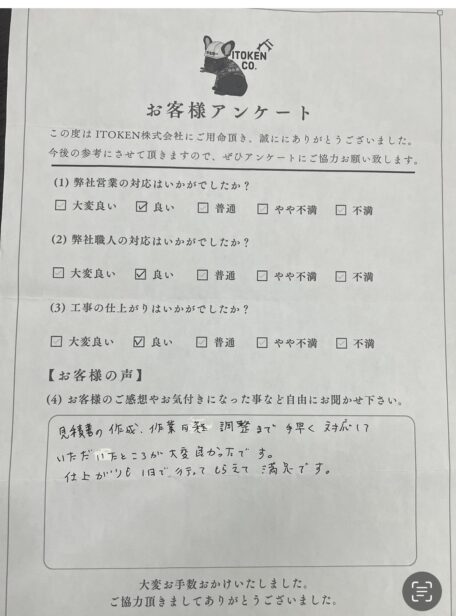 ITOKEN
CO.
お客様アンケート
この度は ITOKEN株式会社にご用命頂き、誠ににありがとうございました。
今後の参考にさせて頂きますので、ぜひアンケートにご協力お願い致します。
(1) 弊社営業の対応はいかがでしたか?
☐ 大変良い ☑ 良い ☐ 普通 ☐ やや不満 ☐ 不満
(2) 弊社職人の対応はいかがでしたか?
☐ 大変良い ☑ 良い ☐ 普通 ☐ やや不満 ☐ 不満
(3) 工事の仕上がりはいかがでしたか?
☐ 大変良い ☑ 良い ☐ 普通 ☐ やや不満 ☐ 不満
【お客様の声】
(4) お客様のご感想やお気付きになった事など自由にお聞かせ下さい。
見積書の作成、作業日程 調整まで手早く対応して
いただいたところが大変良かったです。
仕上がりも1日で行ってもらえて満足です。
大変お手数おかけいたしました。
ご協力頂きましてありがとうございました。